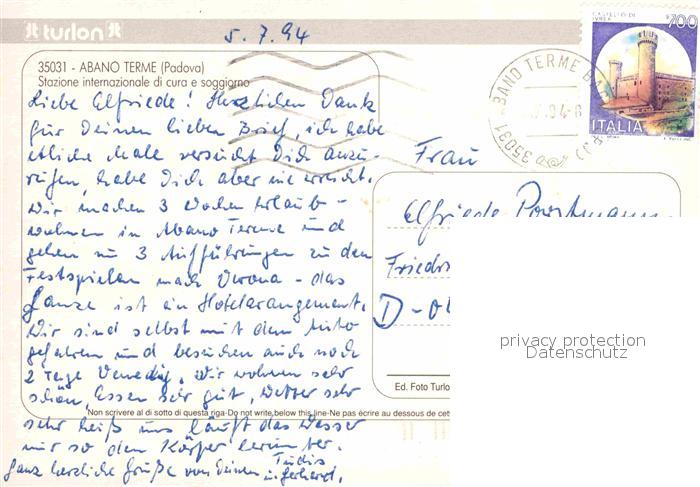 turlon
turlon
5.7.94
700
CASTELLO DI IVREA
ITALIA
35031 - ABANO TERME (Padova)
Stazione internazionale di cura e soggiorno
Liebe Elfriede! Herzlichen Dank
für Deinen lieben Brief, ich habe
etliche Male versucht Dich anzu-
rufen, habe Dich aber nie erreicht.
Wir machen 3 Wochen Urlaub -
wohnen in Abano Terme und
gehen zu 3 Aufführungen zu den
Festspielen nach Verona - das
Ganze ist ein Hotelarangement.
Wir sind selbst mit dem Auto
gefahren und besuchen auch noch
2 Tage Venedig. Wir wohnen sehr
schön, Essen sehr gut, Wetter sehr
sehr heiß uns läuft das Wasser
nur so den Körper herunter.
Ganz herzliche Grüße von Deinen
u. Gerhard.
Frau
Elfriede Porstmann
Friedr
D-04
Ed. Foto Turlo
Non scrivere al di sotto di questa riga-Do not write below this line-Ne pas écrire au dessous de cett
ABANO TERME
35031
privacy protection
Datenschutz